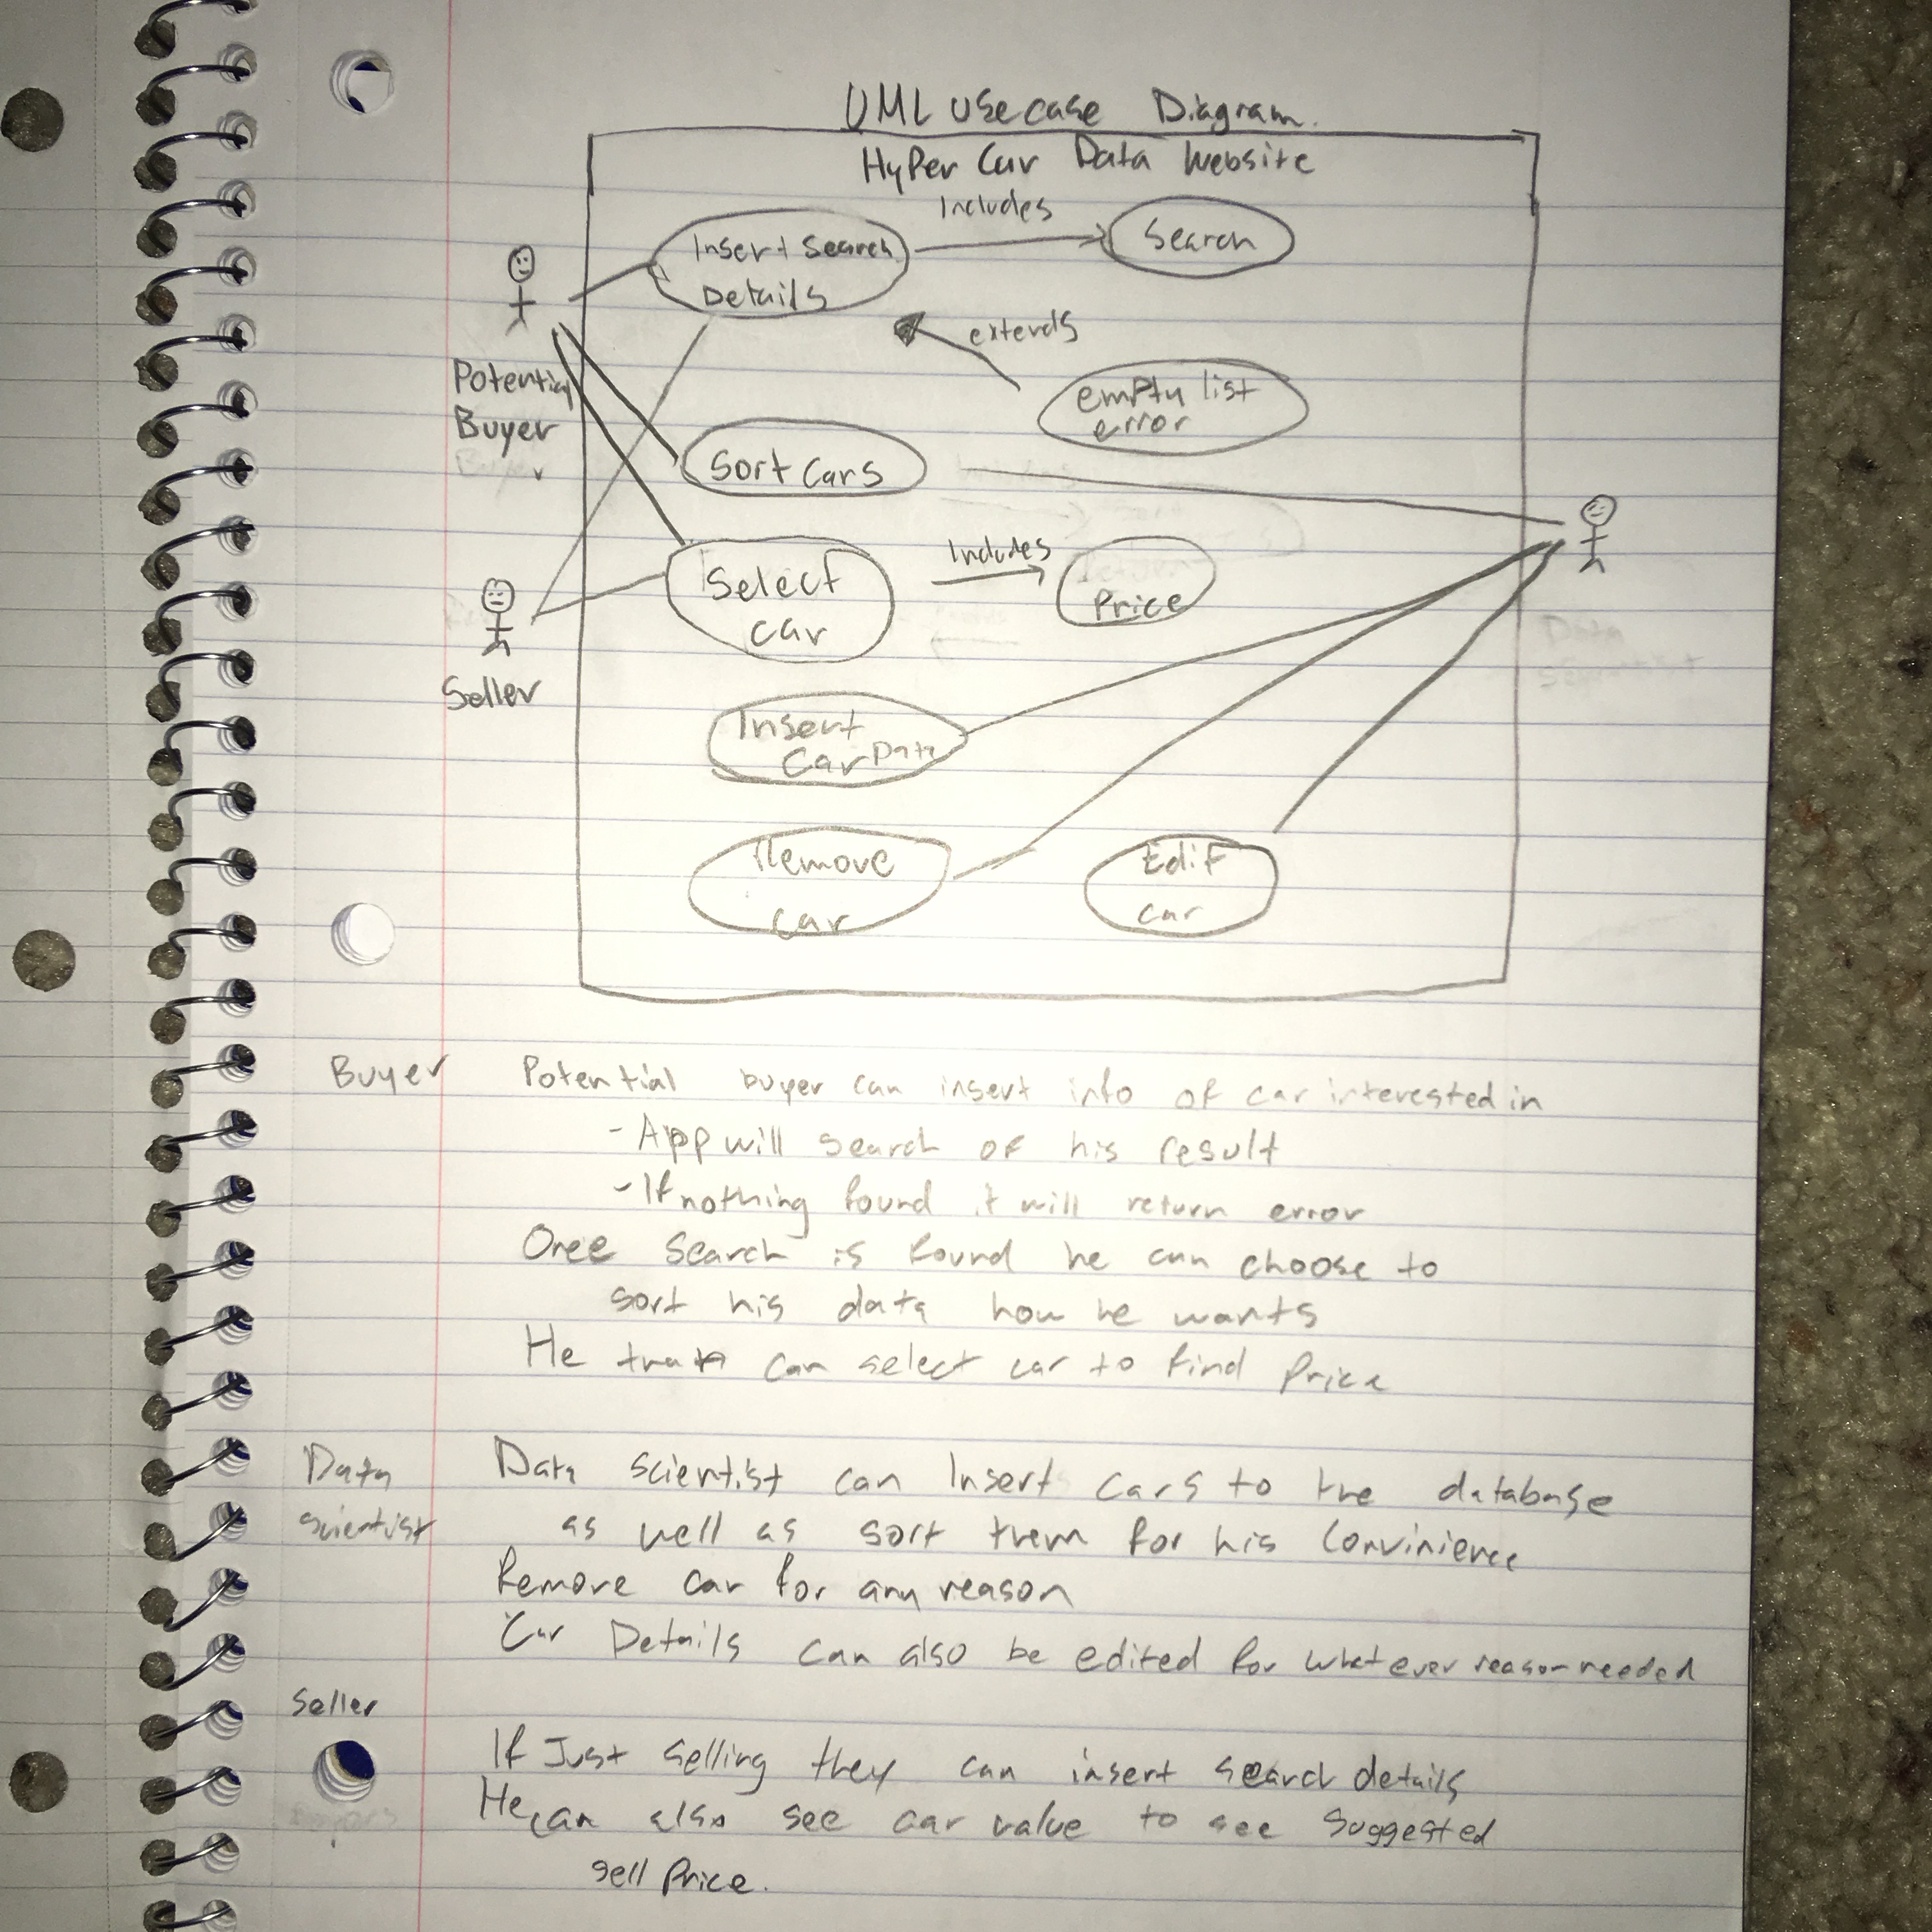 UML Use case Diagram.
HyPer Car Data Website
Includes
Insert Search
Details
Search
extends
Potential
Buyer
Buyer
empty list
error
Sort Cars
Includes
Select
car
Price
Data
Scientist
Seller
Insert
Car Data
Remove
car
Edit
car
Buyer
Potential buyer can insert info of car interested in
- App will search of his result
- If nothing found it will return error
Once search is found he can choose to
sort his data how he wants
He can select car to find Price
Data
scientist
Data scientist can Insert Cars to the database
as well as sort them for his Convinience
Remove car for any reason
Car Details can also be edited for what ever reason needed
Seller
If Just selling they can insert search details
He can also see car value to see suggested
sell Price.